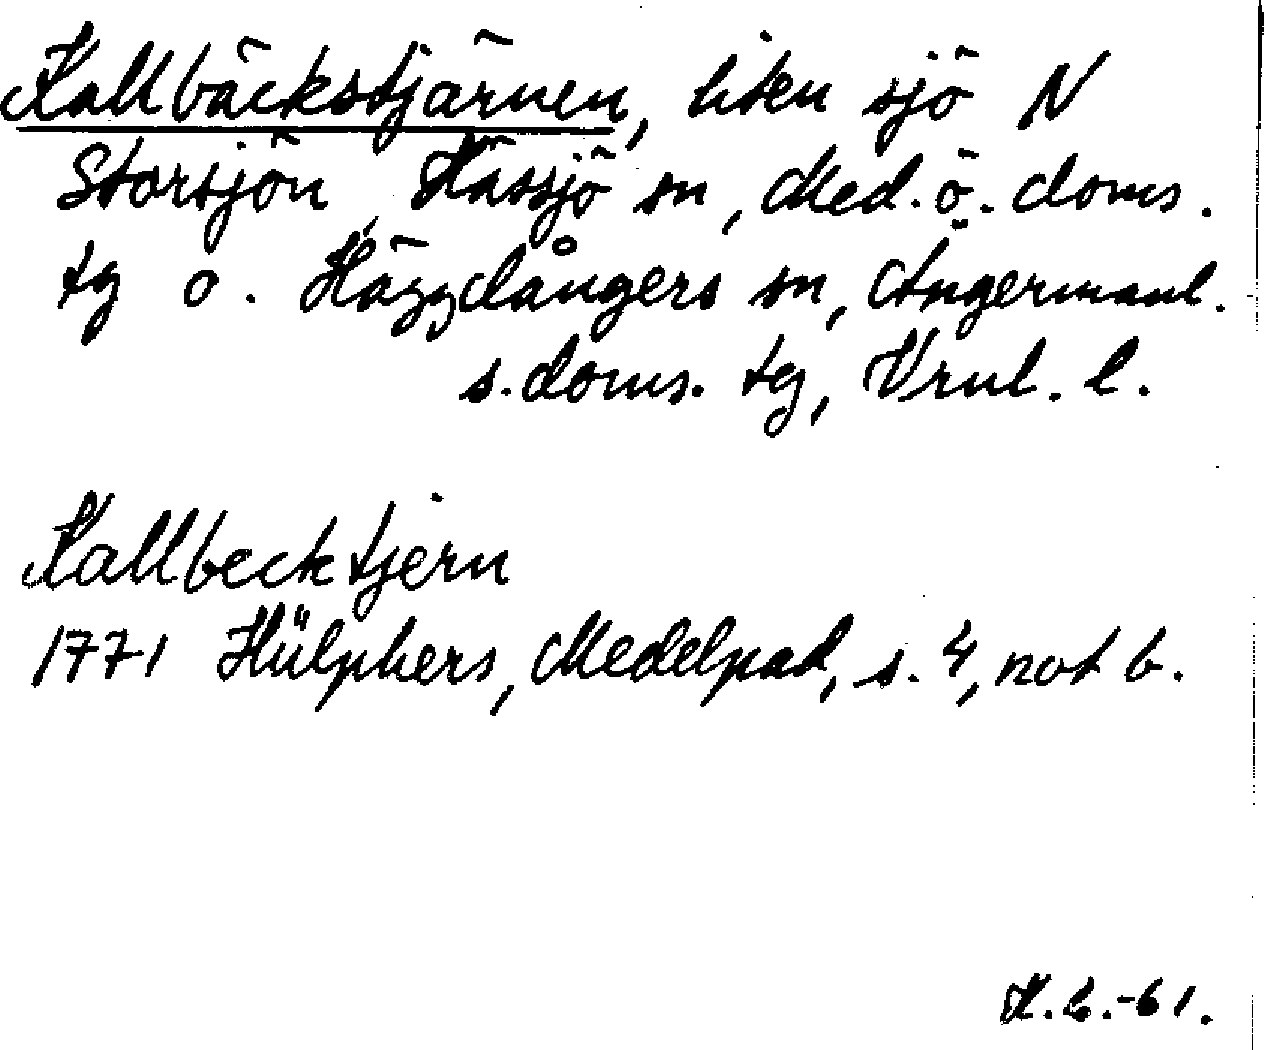 Kallbäckstjärnen, liten sjö N
Storsjön, Hässjö sn, Med. ö. doms.
tg o. Häggdångers sn, Ångermanl.
s. doms. tg, Vrnl. l.
Kallbecktjern
1771 Hülphers, Medelpad, s. 4, not b.
K.L.-61.